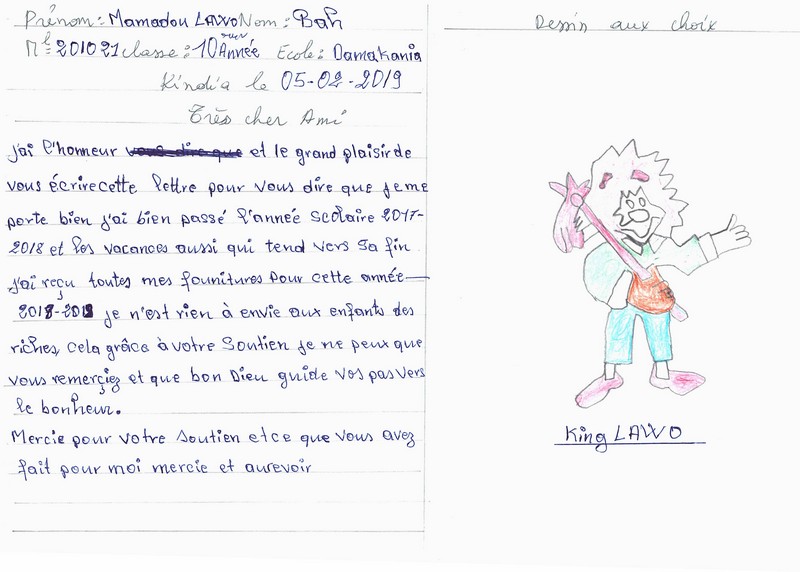 Prénom: Mamadou LAWO Nom: Bah
Nº 201021 classe: 10ème Année Ecole: Damakania
Kindia le 05-02-2019
Très cher Ami
j'ai l'honneur vous dire que et le grand plaisir de
vous écrire cette lettre pour vous dire que je me
porte bien j'ai bien passé l'année scolaire 2017-
2018 et les vacances aussi qui tend vers sa fin
j'ai reçu toutes mes founitures pour cette année
2018-2019 je n'est rien à envie aux enfants des
riches, cela grâce à votre soutien je ne peux que
vous remerçiez et que bon Dieu guide vos pas vers
le bonheur.
Mercie pour votre soutien et ce que vous avez
fait pour moi mercie et aurevoir
Dessin aux choix
King LAWO